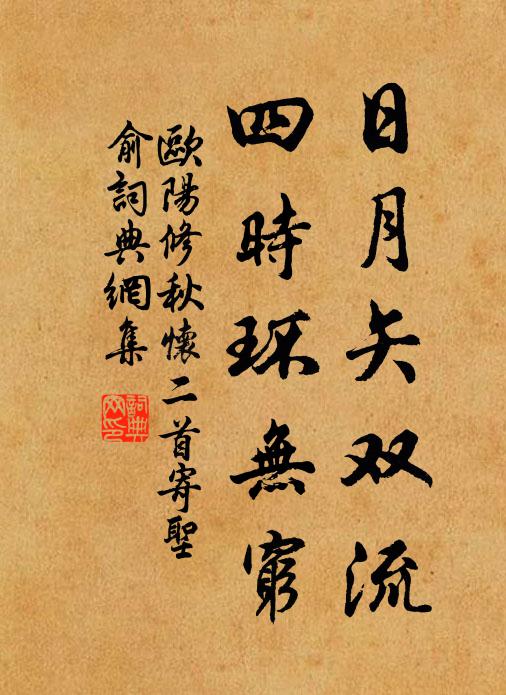 日月矢双流
四時环無窮
歐陽修秋懷二首寄聖
俞詞典網集
詞典
网印